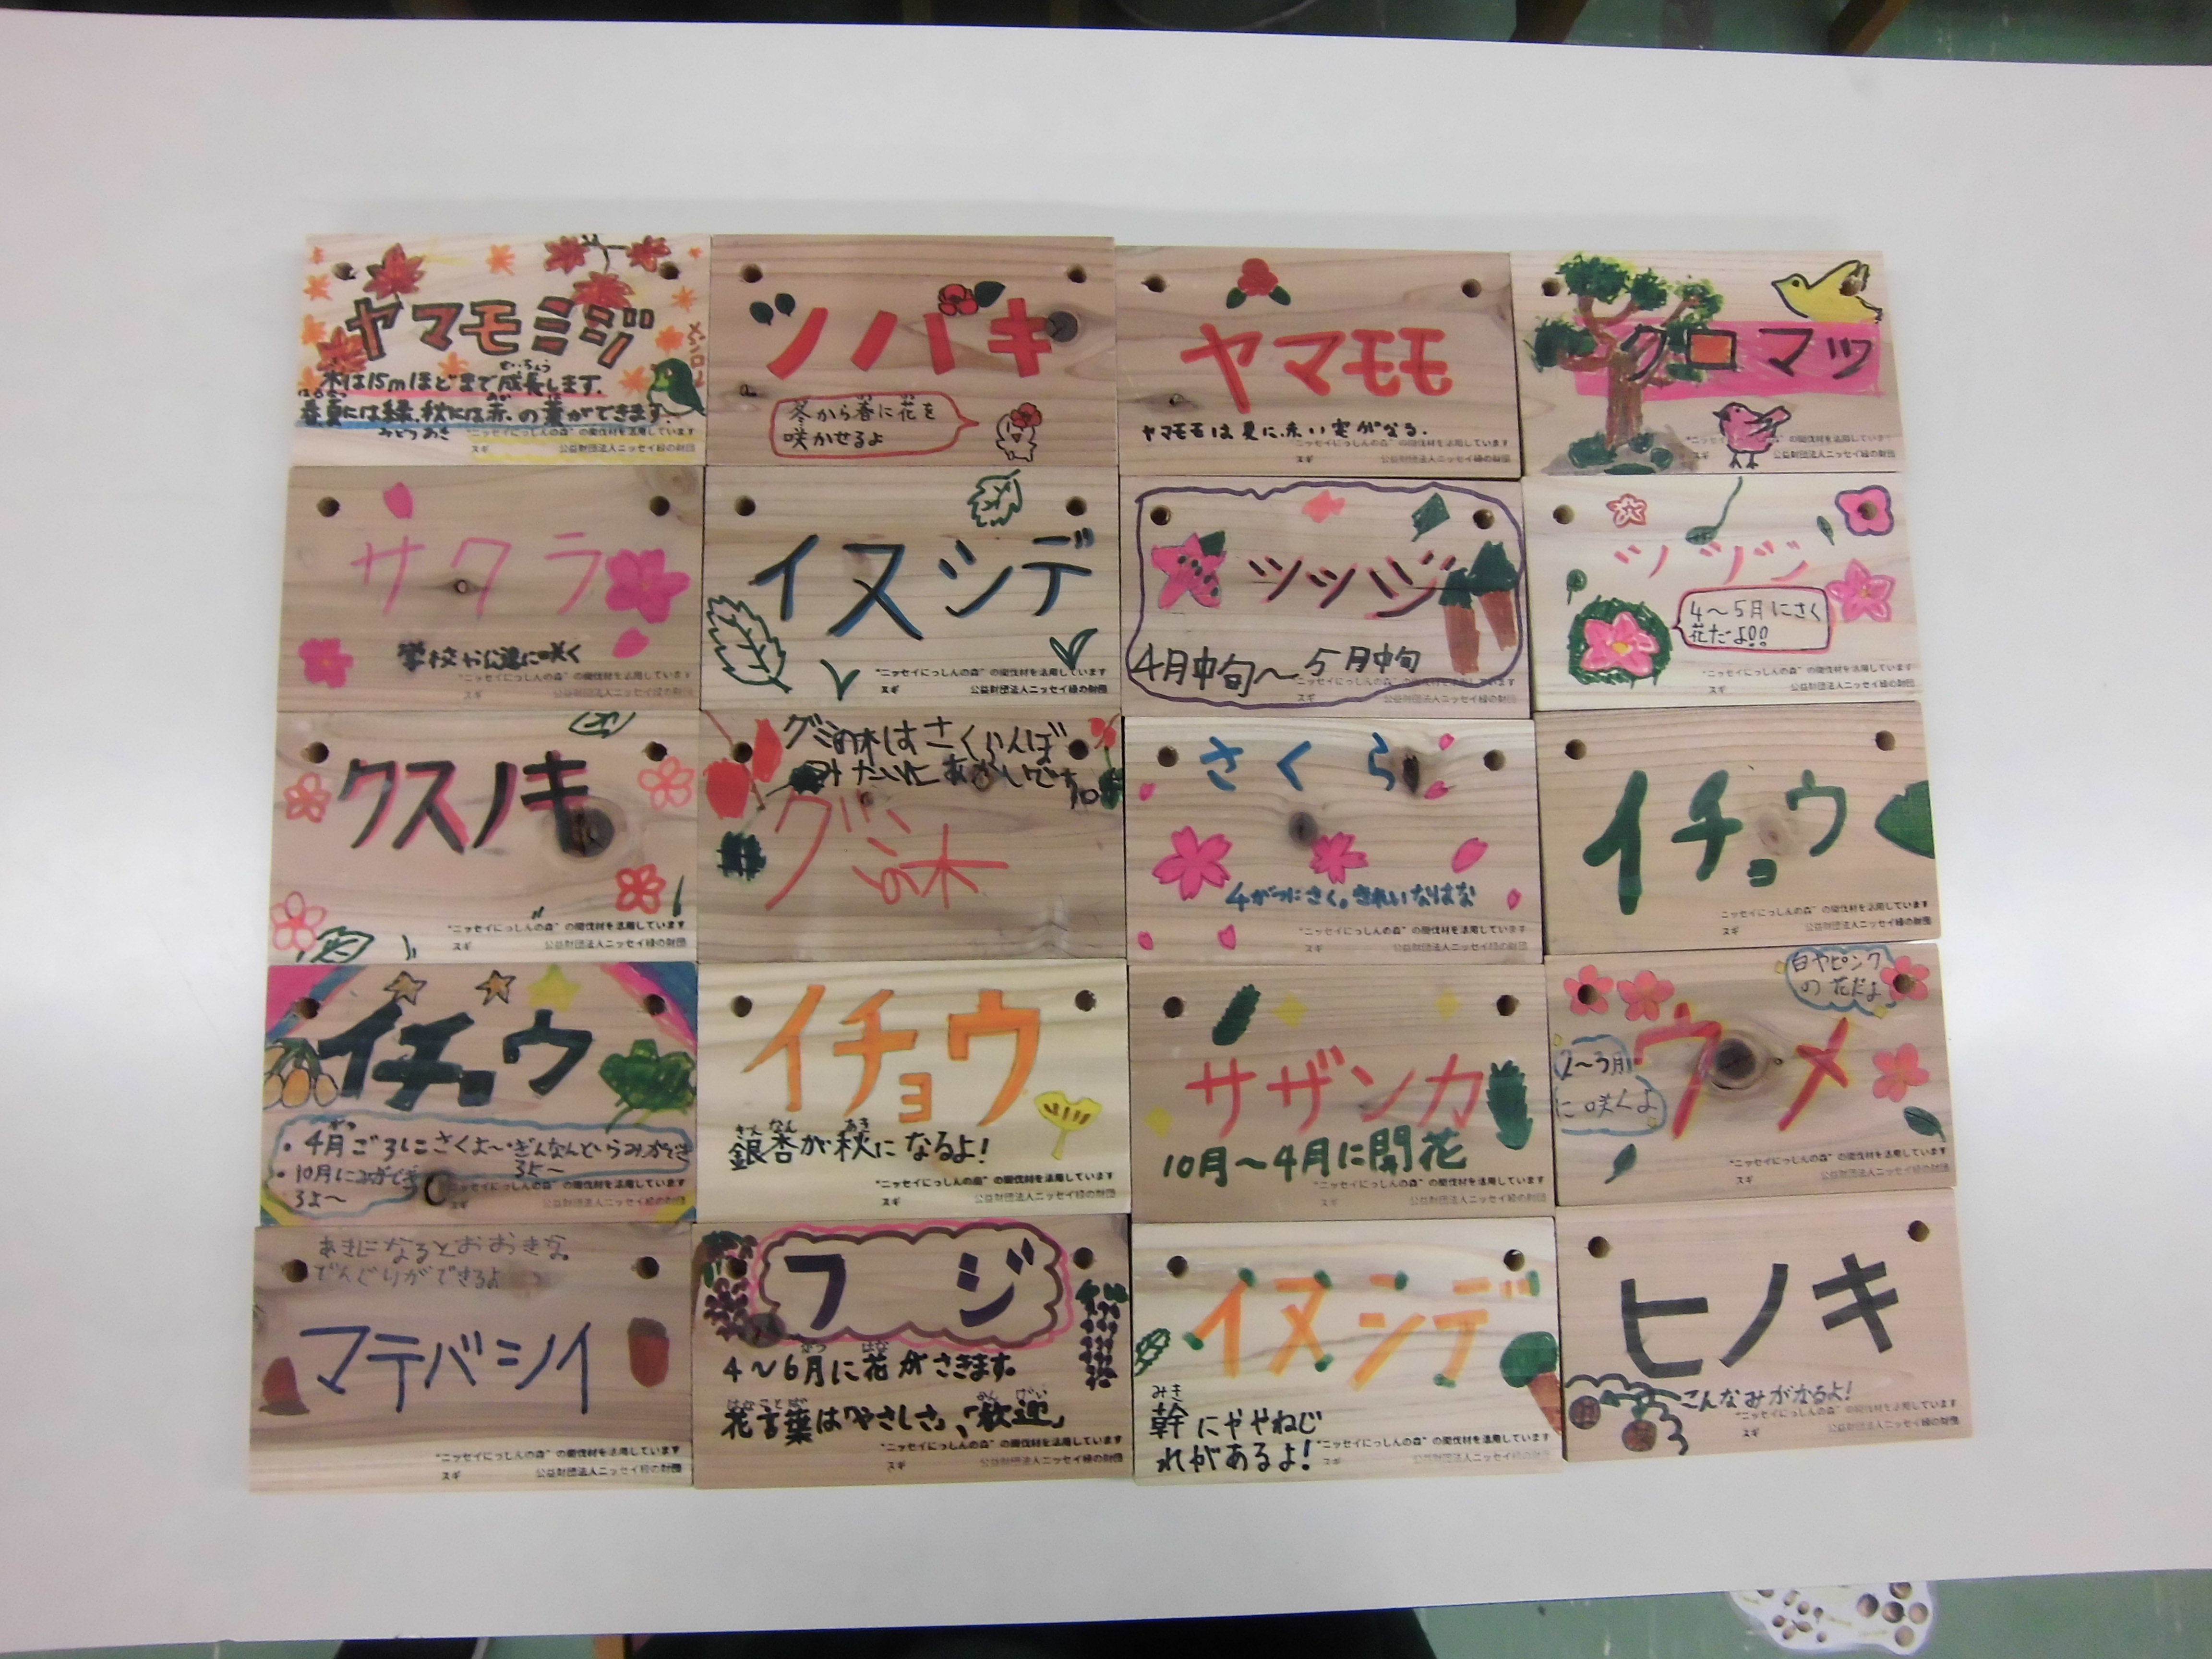 ヤマモミジ
メジロ
せいちょう
木は15mほどまで成長します。
はるなつ
春夏には緑、秋には赤、の葉ができます。
みどり あき
"ニッセイにっしんの森"の間伐材を活用しています
スギ 公益財団法人ニッセイ緑の財団
ツバキ
冬から春に花を
咲かせるよ
ヤマモモ
ヤマモモは夏に、赤い実がなる.
"ニッセイにっしんの森"の間伐材を活用しています
スギ 公益財団法人ニッセイ緑の財団
クロマツ
の間伐材を活用しています
公益財団法人ニッセイ緑の財団
サクラ
咲く
"ニッセイにっしんの森"の間伐材を活用しています
スギ 公益財団法人ニッセイ緑の財団
イヌシデ
"ニッセイにっしんの森"の間伐材を活用しています
スギ 公益財団法人ニッセイ緑の財団
ツツジ
4月中旬〜5月中旬
"ニッセイにっしんの森"の間伐材を活用しています
スギ 公益財団法人ニッセイ緑の財団
ツツジ
4〜5月にさく
花だよ!!
"ニッセイにっしんの森"の間伐材を活用しています
スギ 公益財団法人ニッセイ緑の財団
クスノキ
"ニッセイにっしんの森"の間伐材を活用しています
スギ 公益財団法人ニッセイ緑の財団
グミの木はさくらんぼ
みたいに
グミの木
さくら
4がつにさく。きれいなはな
"ニッセイにっしんの森"の間伐材を活用しています
スギ 公益財団法人ニッセイ緑の財団
イチョウ
ニッセイにっしんの森"の間伐材を活用しています
スギ 公益財団法人ニッセイ緑の財団
イチョウ
・4月ごろにさくよ〜・ぎんなんというみができ
るよ〜
・10月に
るよ〜
ニッセイにっしんの森"の間伐材を活用しています
スギ 公益財団法人ニッセイ緑の財団
イチョウ
ぎんなん あき
銀杏が秋になるよ!
"ニッセイにっしんの森"の間伐材を活用しています
スギ 公益財団法人ニッセイ緑の財団
サザンカ
10月〜4月に開花
"ニッセイにっしんの森"の間伐材を活用しています
スギ 公益財団法人ニッセイ緑の財団
白やピンク
の花だよ
ウメ
2〜3月
に咲くよ
"ニッセイにっしんの森"の間伐材を活用しています
スギ 公益財団法人ニッセイ緑の財団
あきになるとおおきな
どんぐりができるよ
マテバシイ
"ニッセイにっしんの森"の間伐材を活用しています
スギ 公益財団法人ニッセイ緑の財団
フジ
がつ はな
4〜6月に花がさきます。
はなことば かんげい
花言葉は「やさしさ」、「歓迎」
"ニッセイにっしんの森"の間伐材を活用しています
スギ 公益財団法人ニッセイ緑の財団
イヌシデ
みき
幹にややねじ
れがあるよ!
"ニッセイにっしんの森"の間伐材を活用しています
スギ 公益財団法人ニッセイ緑の財団
ヒノキ
こんなみがなるよ!
"ニッセイにっしんの森"の間伐材を活用しています
スギ 公益財団法人ニッセイ緑の財団